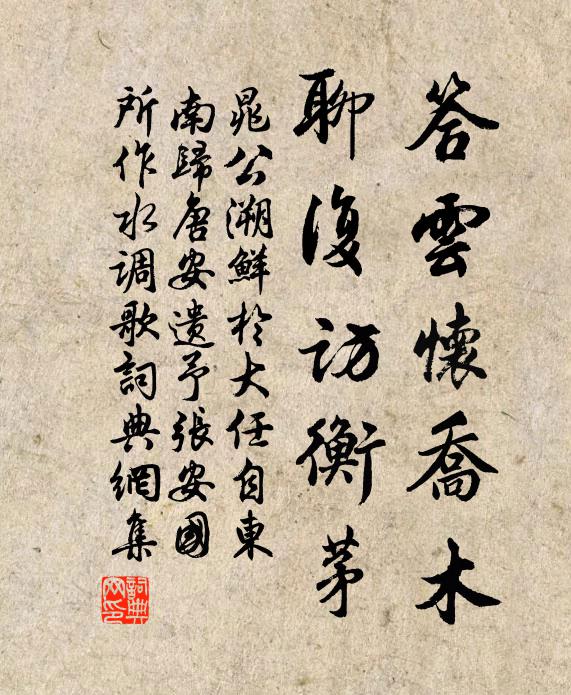 答雲懷喬木
聊復訪衡茅
晁公溯鮮於大任自東
南歸唐安遺予張安國
所作水調歌詞典網集
詞典
网印